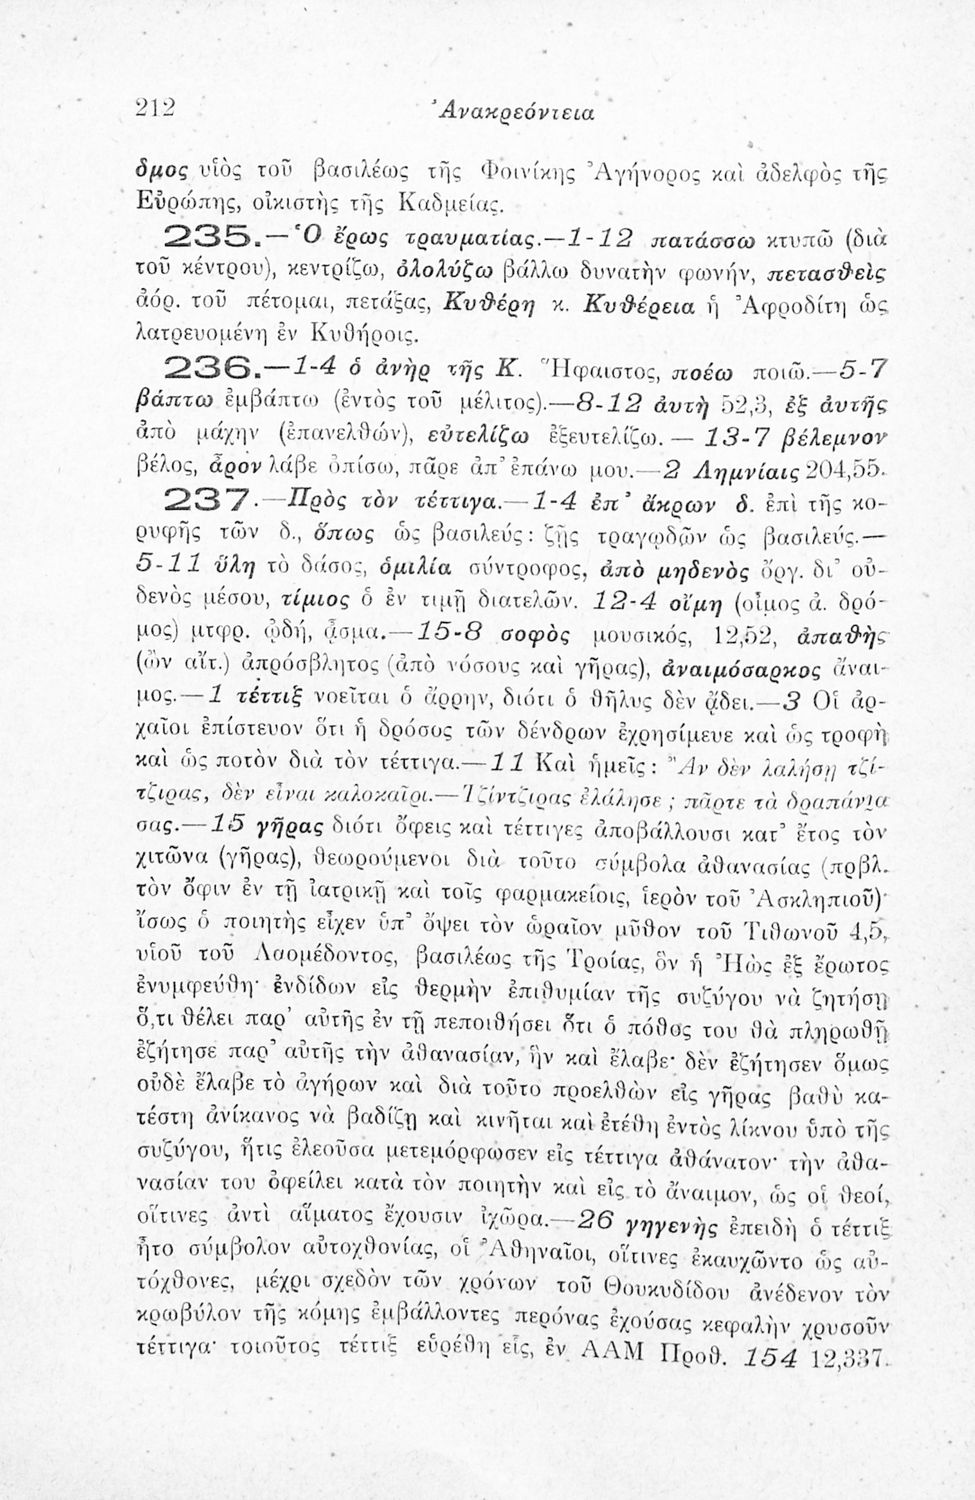 212 Ἀνακρεόντεια
δμος υἱὸς τοῦ βασιλέως τῆς Φοινίκης Ἀγήνορος καὶ ἀδελφὸς τῆς
Εὐρώπης, οἰκιστὴς τῆς Καδμείας.
235.—Ὁ ἔρως τραυματίας.—1-12 πατάσσω κτυπῶ (διὰ
τοῦ κέντρου), κεντρίζω, ὀλολύζω βάλλω δυνατὴν φωνήν, πετασθεὶς
ἀόρ. τοῦ πέτομαι, πετάξας, Κυθέρη κ. Κυθέρεια ἡ Ἀφροδίτη ὡς
λατρευομένη ἐν Κυθήροις.
236.—1-4 ὁ ἀνὴρ τῆς Κ. Ἥφαιστος, ποέω ποιῶ.—5-7
βάπτω ἐμβάπτω (ἐντὸς τοῦ μέλιτος).—8-12 ἀυτὴ 52,3, ἐξ ἀυτῆς
ἀπὸ μάχην (ἐπανελθών), εὐτελίζω ἐξευτελίζω.— 13-7 βέλεμνον
βέλος, ἆρον λάβε ὀπίσω, πᾶρε ἀπ' ἐπάνω μου.—2 Λημνίαις 204,55.
237.—Πρὸς τὸν τέττιγα.—1-4 ἐπ' ἄκρων δ. ἐπὶ τῆς κο-
ρυφῆς τῶν δ., ὅπως ὡς βασιλεύς: ζῇς τραγῳδῶν ὡς βασιλεύς.—
5-11 ὕλη τὸ δάσος, ὁμιλία σύντροφος, ἀπὸ μηδενὸς ὀργ. δι' οὐ-
δενὸς μέσου, τίμιος ὁ ἐν τιμῇ διατελῶν. 12-4 οἴμη (οἶμος ἁ. δρό-
μος) μτφρ. ᾠδή, ᾆσμα.—15-8 σοφὸς μουσικός, 12,52, ἀπαθὴς
(ὢν αἴτ.) ἀπρόσβλητος (ἀπὸ νόσους καὶ γῆρας), ἀναιμόσαρκος ἄναι-
μος.—1 τέττιξ νοεῖται ὁ ἄρρην, διότι ὁ θῆλυς δὲν ᾄδει.—3 Οἱ ἀρ-
χαῖοι ἐπίστευον ὅτι ἡ δρόσος τῶν δένδρων ἐχρησίμευε καὶ ὡς τροφὴ
καὶ ὡς ποτὸν διὰ τὸν τέττιγα.—11 Καὶ ἡμεῖς: Ἂν δὲν λαλήσῃ τζί-
τζιρας, δὲν εἶναι καλοκαῖρι.—Τζίντζιρας ἐλάλησε; πᾶρτε τὰ δραπάνια
σας.—15 γῆρας διότι ὄφεις καὶ τέττιγες ἀποβάλλουσι κατ' ἔτος τὸν
χιτῶνα (γῆρας), θεωρούμενοι διὰ τοῦτο σύμβολα ἀθανασίας (πρβλ.
τὸν ὄφιν ἐν τῇ ἰατρικῇ καὶ τοῖς φαρμακείοις, ἱερὸν τοῦ Ἀσκληπιοῦ)·
ἴσως ὁ ποιητὴς εἶχεν ὑπ' ὄψει τὸν ὡραῖον μῦθον τοῦ Τιθωνοῦ 4,5,
υἱοῦ τοῦ Λαομέδοντος, βασιλέως τῆς Τροίας, ὃν ἡ Ἠὼς ἐξ ἔρωτος
ἐνυμφεύθη· ἐνδίδων εἰς θερμὴν ἐπιθυμίαν τῆς συζύγου νὰ ζητήσῃ
ὅ,τι θέλει παρ' αὐτῆς ἐν τῇ πεποιθήσει ὅτι ὁ πόθος του θὰ πληρωθῇ
ἐζήτησε παρ' αὐτῆς τὴν ἀθανασίαν, ἣν καὶ ἔλαβε· δὲν ἐζήτησεν ὅμως
οὐδὲ ἔλαβε τὸ ἀγήρων καὶ διὰ τοῦτο προελθὼν εἰς γῆρας βαθὺ κα-
τέστη ἀνίκανος νὰ βαδίζῃ καὶ κινῆται καὶ ἐτέθη ἐντὸς λίκνου ὑπὸ τῆς
συζύγου, ἥτις ἐλεοῦσα μετεμόρφωσεν εἰς τέττιγα ἀθάνατον· τὴν ἀθα-
νασίαν του ὀφείλει κατὰ τὸν ποιητὴν καὶ εἰς τὸ ἄναιμον, ὡς οἱ θεοί,
οἵτινες ἀντὶ αἵματος ἔχουσιν ἰχῶρα.—26 γηγενὴς ἐπειδὴ ὁ τέττιξ
ἦτο σύμβολον αὐτοχθονίας, οἱ Ἀθηναῖοι, οἵτινες ἐκαυχῶντο ὡς αὐ-
τόχθονες, μέχρι σχεδὸν τῶν χρόνων τοῦ Θουκυδίδου ἀνέδενον τὸν
κρωβύλον τῆς κόμης ἐμβάλλοντες περόνας ἐχούσας κεφαλὴν χρυσοῦν
τέττιγα· τοιοῦτος τέττιξ εὑρέθη εἷς, ἐν ΑΑΜ Προθ. 154 12,337.